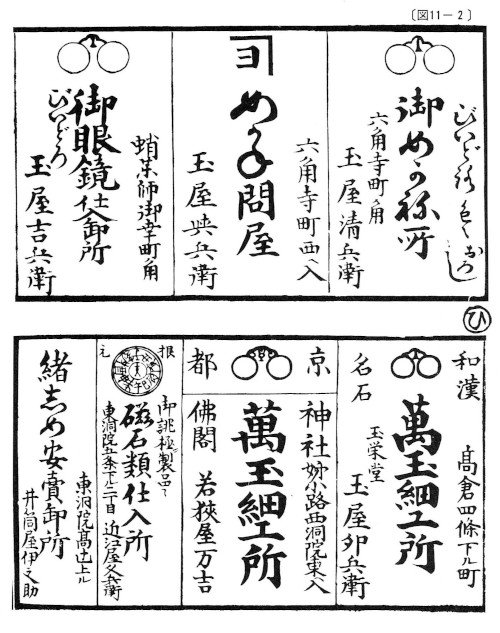 〔図11－2〕
びいどろ るい おろし
御めがね所
六角寺町角
玉屋清兵衛
ヨ
めがね問屋
六角寺町西入
玉屋
兵衛
御眼鏡仕入卸所
びいどろ
蛸薬師御幸町角
玉屋吉兵衛
ひ
和漢
名石
萬玉細工所
高倉四條下ル町
玉栄堂
玉屋卯兵衛
京
都
神社
佛閣
萬玉細工所
姉小路西洞院東入
若狭屋万吉
根
元
御誂極製品々
磁石類仕入所
東洞院五条下ル二丁目
近江屋
兵衛
緒じめ安賣卸所
東洞院高辻上ル
井筒屋伊之助